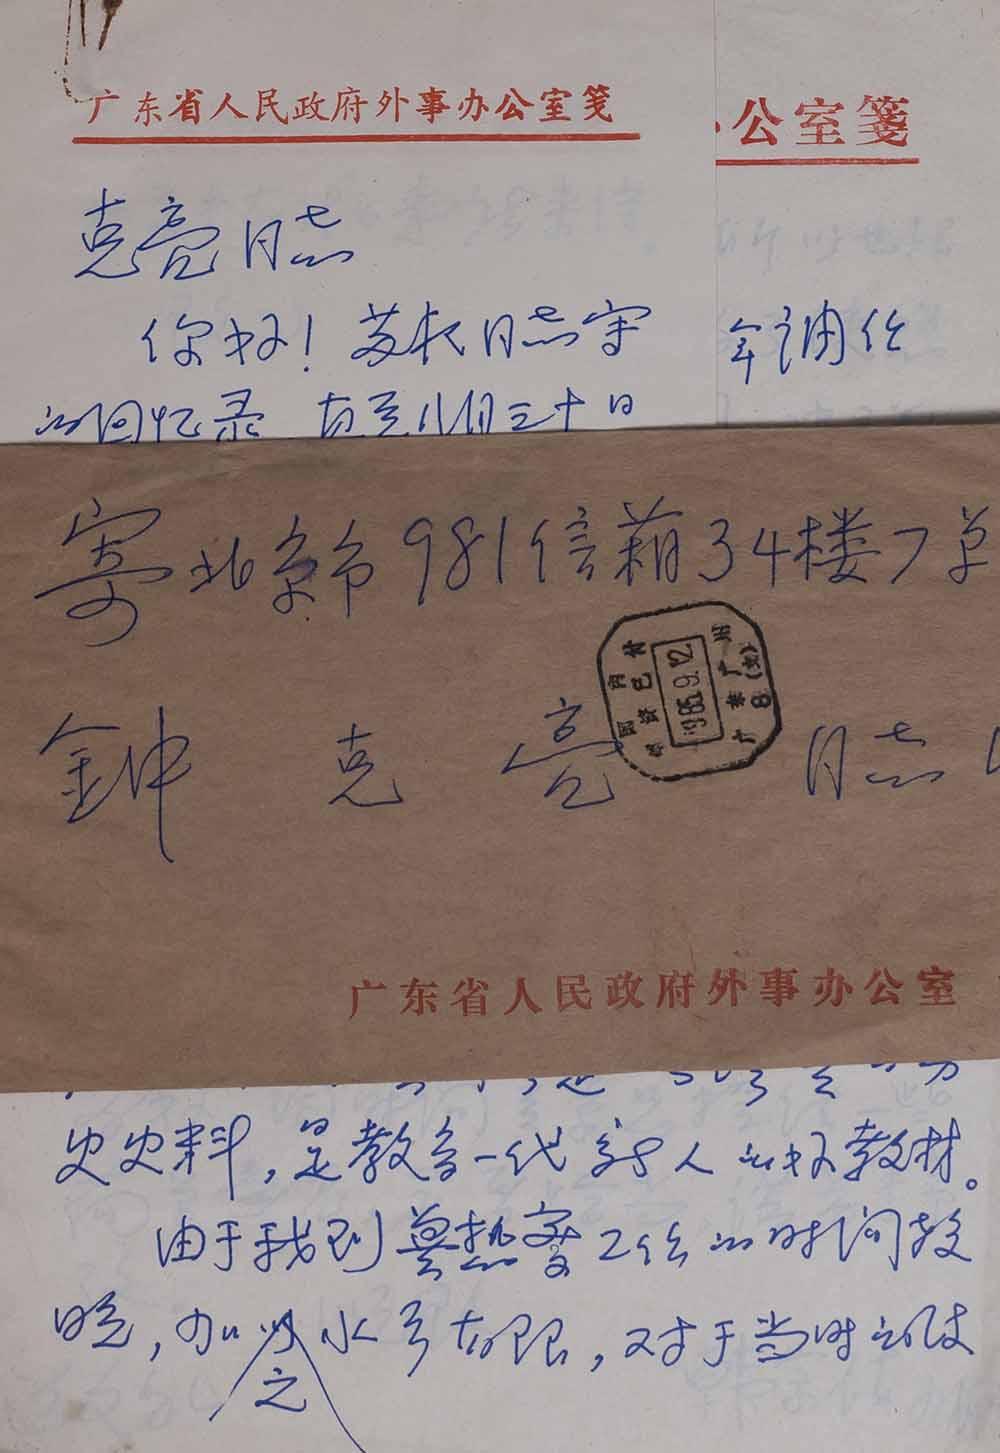 广东省人民政府外事办公室笺
公室笺
克亮同志
你好！苏权同志寄
的回忆录
年调任
寄北京市981信箱34楼7单
钟克亮同志
国内
邮资已付
1985.9.12
广东广州
8(支)
广东省人民政府外事办公室
史史料，是教育一代新人的好教材。
由于我到莫热窝工作的时间较
晚，加之水平有限，对于当时的